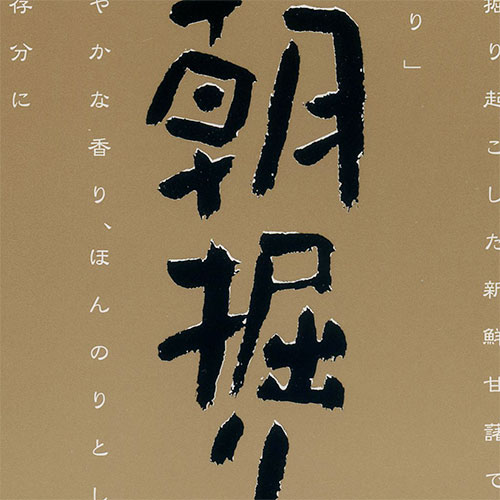 掘り起こした新鮮甘藷で
り」
朝掘り
やかな香り、ほんのりとし
存分に